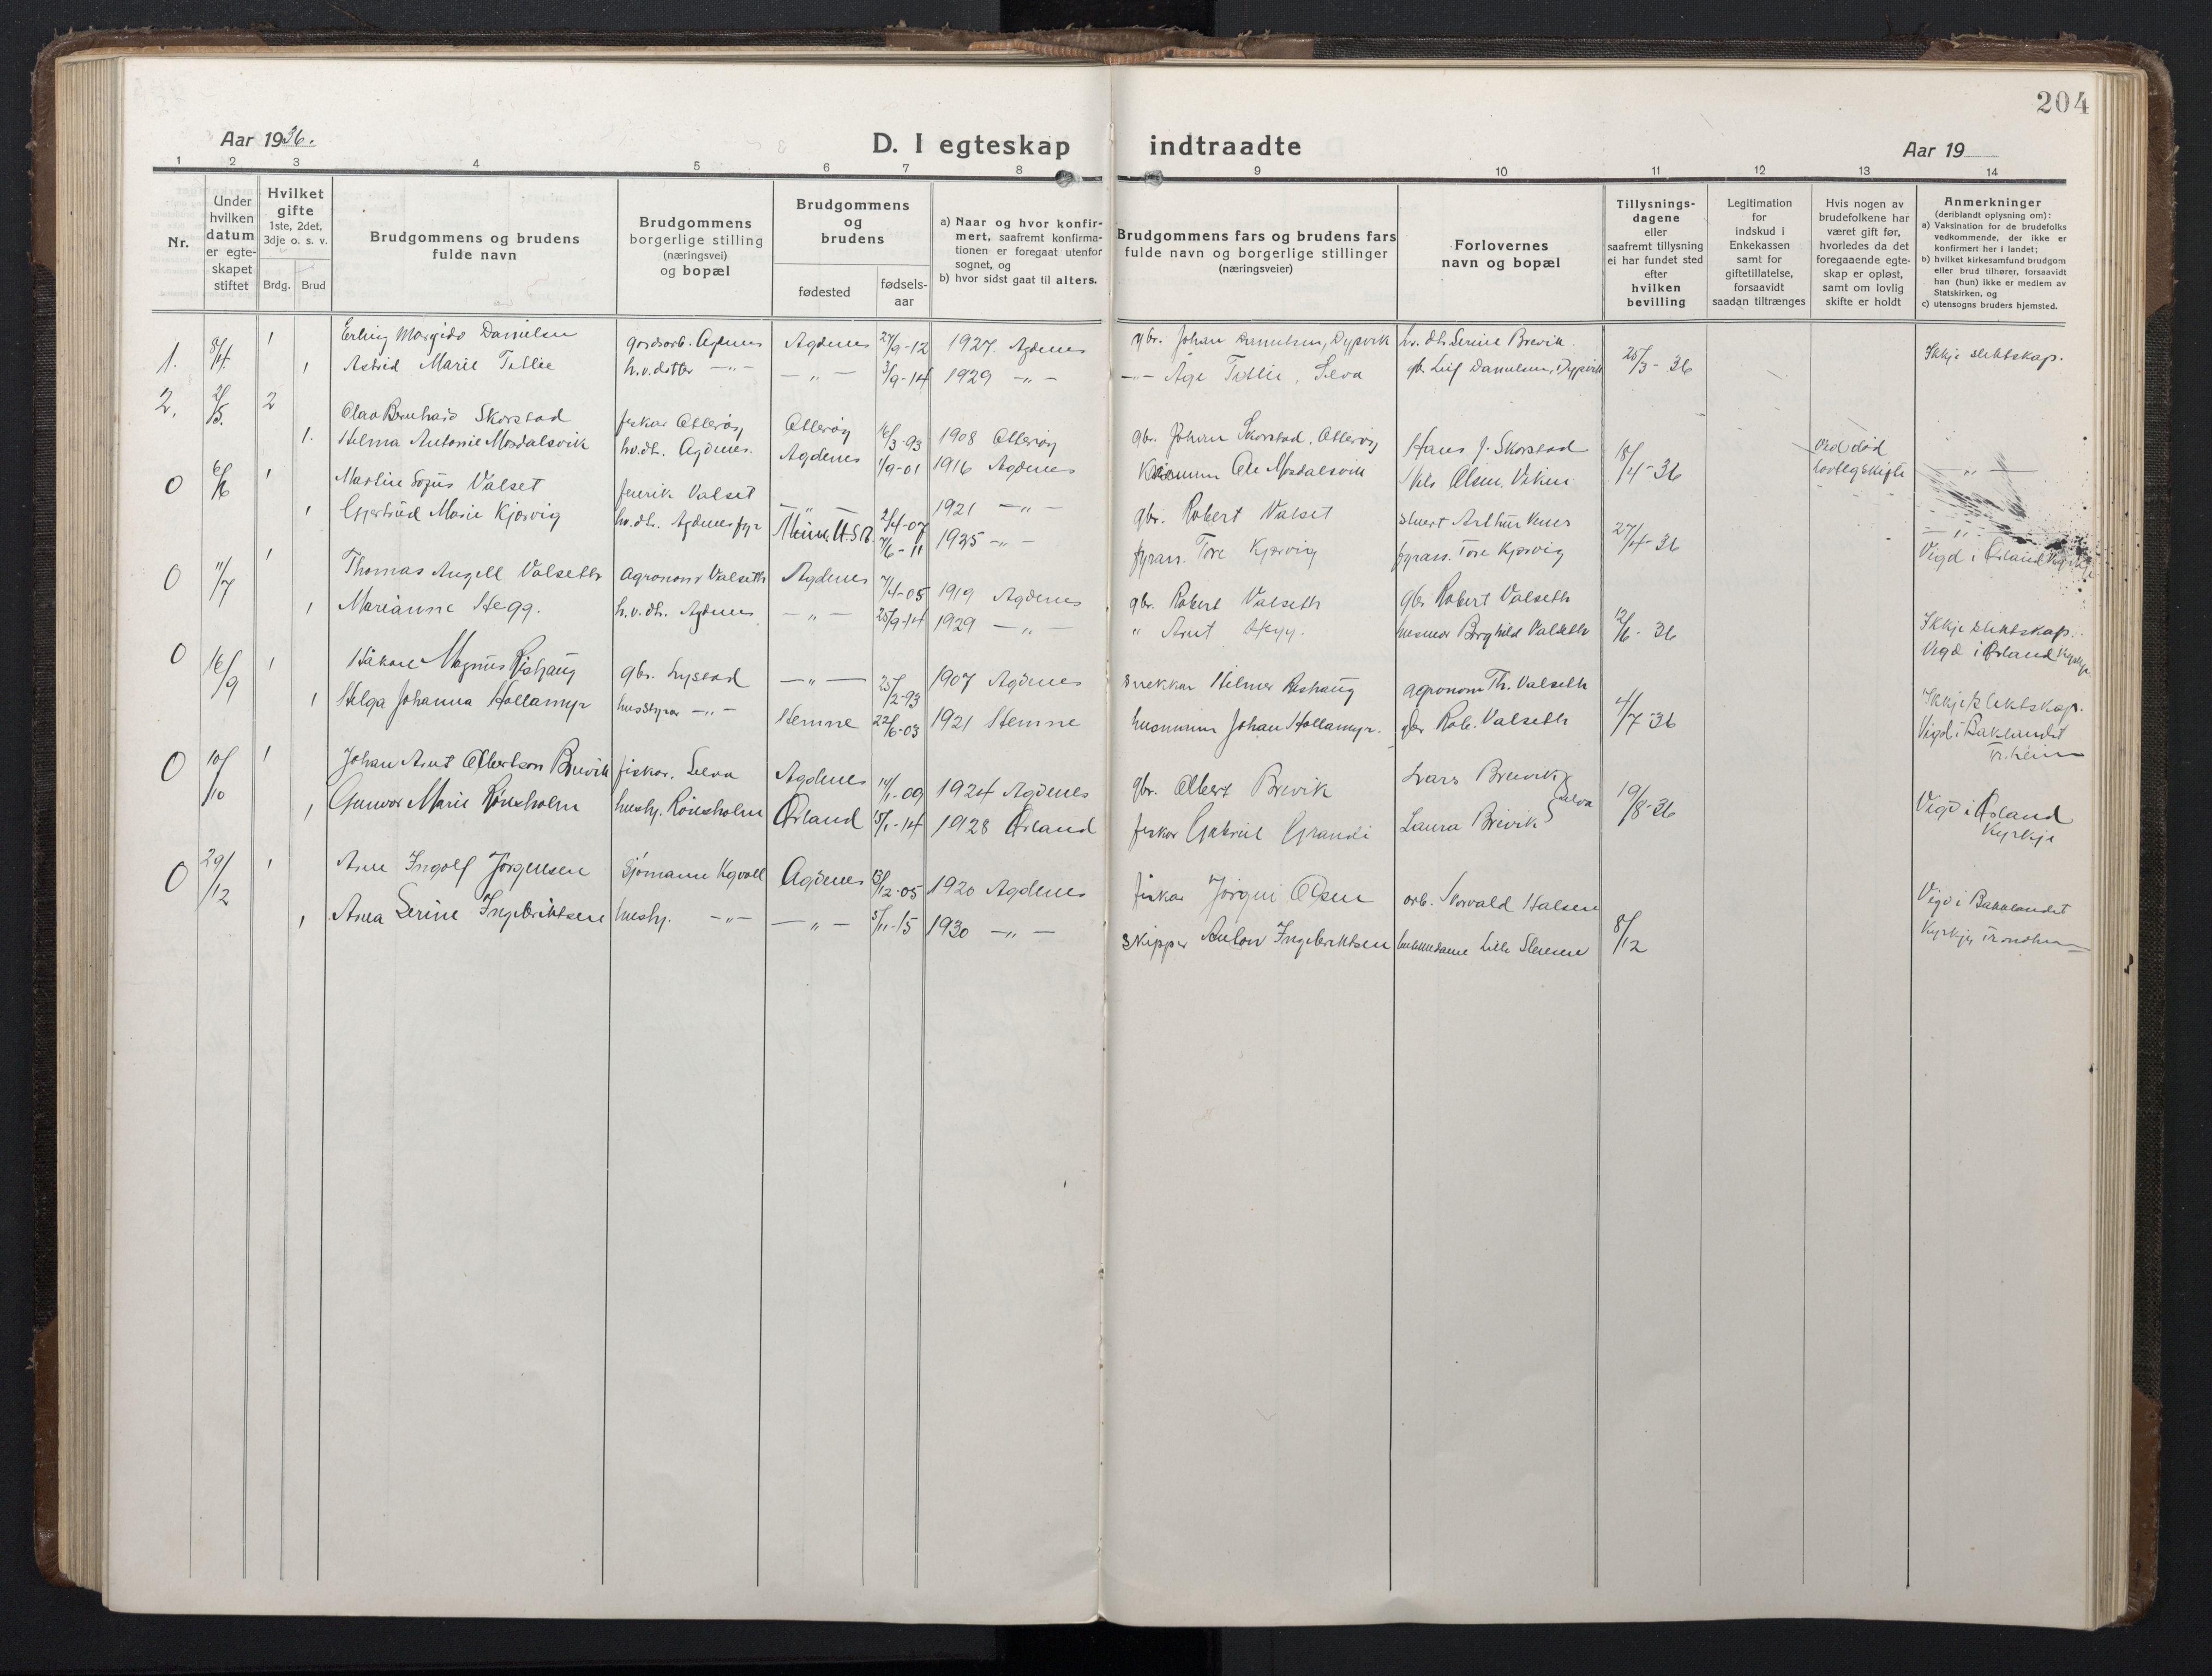 204
Aar 1936.
D. I egteskap indtraadte
Aar 19
1 2 3 4 5 6 7 8 9 10 11 12 13 14
Nr.
Under hvilken datum er egteskapet stiftet
Hvilket gifte 1ste, 2det, 3dje o. s. v.
Brdg. Brud
Brudgommens og brudens fulde navn
Brudgommens borgerlige stilling (næringsvei) og bopæl
Brudgommens og brudens
fødested fødselsaar
a) Naar og hvor konfirmert, saafremt konfirmationen er foregaat utenfor sognet, og
b) hvor sidst gaat til alters.
Brudgommens fars og brudens fars fulde navn og borgerlige stillinger (næringsveier)
Forlovernes navn og bopæl
Tillysningsdagene eller saafremt tillysning ei har fundet sted efter hvilken bevilling
Legitimation for indskud i Enkekassen samt for giftetillatelse, forsaavidt saadan tiltrænges
Hvis nogen av brudefolkene har været gift før, hvorledes da det foregaaende egteskap er opløst, samt om lovlig skifte er holdt
Anmerkninger (deriblandt oplysning om):
a) Vaksination for de brudefolks vedkommende, der ikke er konfirmert her i landet;
b) hvilket kirkesamfund brudgom eller brud tilhører, forsaavidt han (hun) ikke er medlem av Statskirken, og
c) utensogns bruders hjemsted.
1. 8/4 1 Erling Margido Danielsen gardsarb. Agdenes Agdenes 27/9-12 1927 Agdenes gbr. Johan Danielsen, Dypvik hv. dtr. Serine Brevik. 25/3-36 Ikkje slektskap.
1 Astrid Marie Tillie h.v. dotter -„- -„- 3/9-14 1929 -„- -„- Åge Tillie, Selva gb. Leif Danielsen, Dypvik
2. 2/5 2 Olav Bernhard Skorstad fiskar Otterøy Otterøy 16/3-93 1908 Otterøy gbr. Johan Skorstad, Otterøy Hans J. Skorstad 18/4-36 ved død
1. Helma Antonie Mordalsvik hv.dtr. Agdenes. Agdenes 1/9-01 1916 Agdenes Ole Mordalsvik Nils Olsen, Viken lovleg skifte -„-
0 6/6 1 Martin Sofus Valset fenrik Valset -„- 2/4-07 1921 -„- gbr. Robert Valset Arthur 27/4-36 -„-
1 Gjertrud Marie Kjørvig hv.dtr. Agdenes fyr U.S.A. 7/6-11 1925 -„- fyrass. Tore Kjørvig fyrass. Tore Kjørvig Vigd i Ørland Kyrkje
0 11/7 1 Thomas Angell Valseth agronom Valseth Agdenes 7/4-05 1919 Agdenes gbr. Robert Valseth gbr. Robert Valseth 12/6-36 Ikkje slektskap.
1 Marianne Hegg. h.v.dtr. Agdenes -„- 25/9-14 1929 -„- „ Arnt Hegg. husmor Borghild Valseth Vigd i Ørland Kyrkje.
0 16/9 1 Håkon Magnus Rishaug gbr. Lystad -„- 25/2-93 1907 Agdenes snekkar Hilmer Rishaug agronom Th. Valseth 4/7-36 Ikkje slektskap.
1 Helga Johanna Hollamyr husstyrar -„- Hemne 22/6-03 1921 Hemne husmann Johan Hollamyr. gbr Rob. Valseth Vigd i Baklandet Tr.heim
0 10/10 1 Johan Arnt Albertson Brevik fiskar, Selva Agdenes 14/1-09 1924 Agdenes gbr. Albert Brevik Lars Brevik } Selva 19/8-36 Vigd i Ørland
1 Gunvor Marie Rønsholm hushj. Rønsholm Ørland 5/1-14 1928 Ørland fiskar Gabriel Grandi Laura Brevik Kyrkje
0 29/12 1 Arne Ingolf Jørgensen sjømann Agdenes 13/12-05 1920 Agdenes fiskar Jørgen Olsen arb. Torvald Halsen 8/12 Vigd i Bakklandet
1 Anna Serine Ingebriktsen hushj. -„- -„- 5/11-15 1930 -„- skipper Anton Ingebriktsen Kyrkje Trondheim